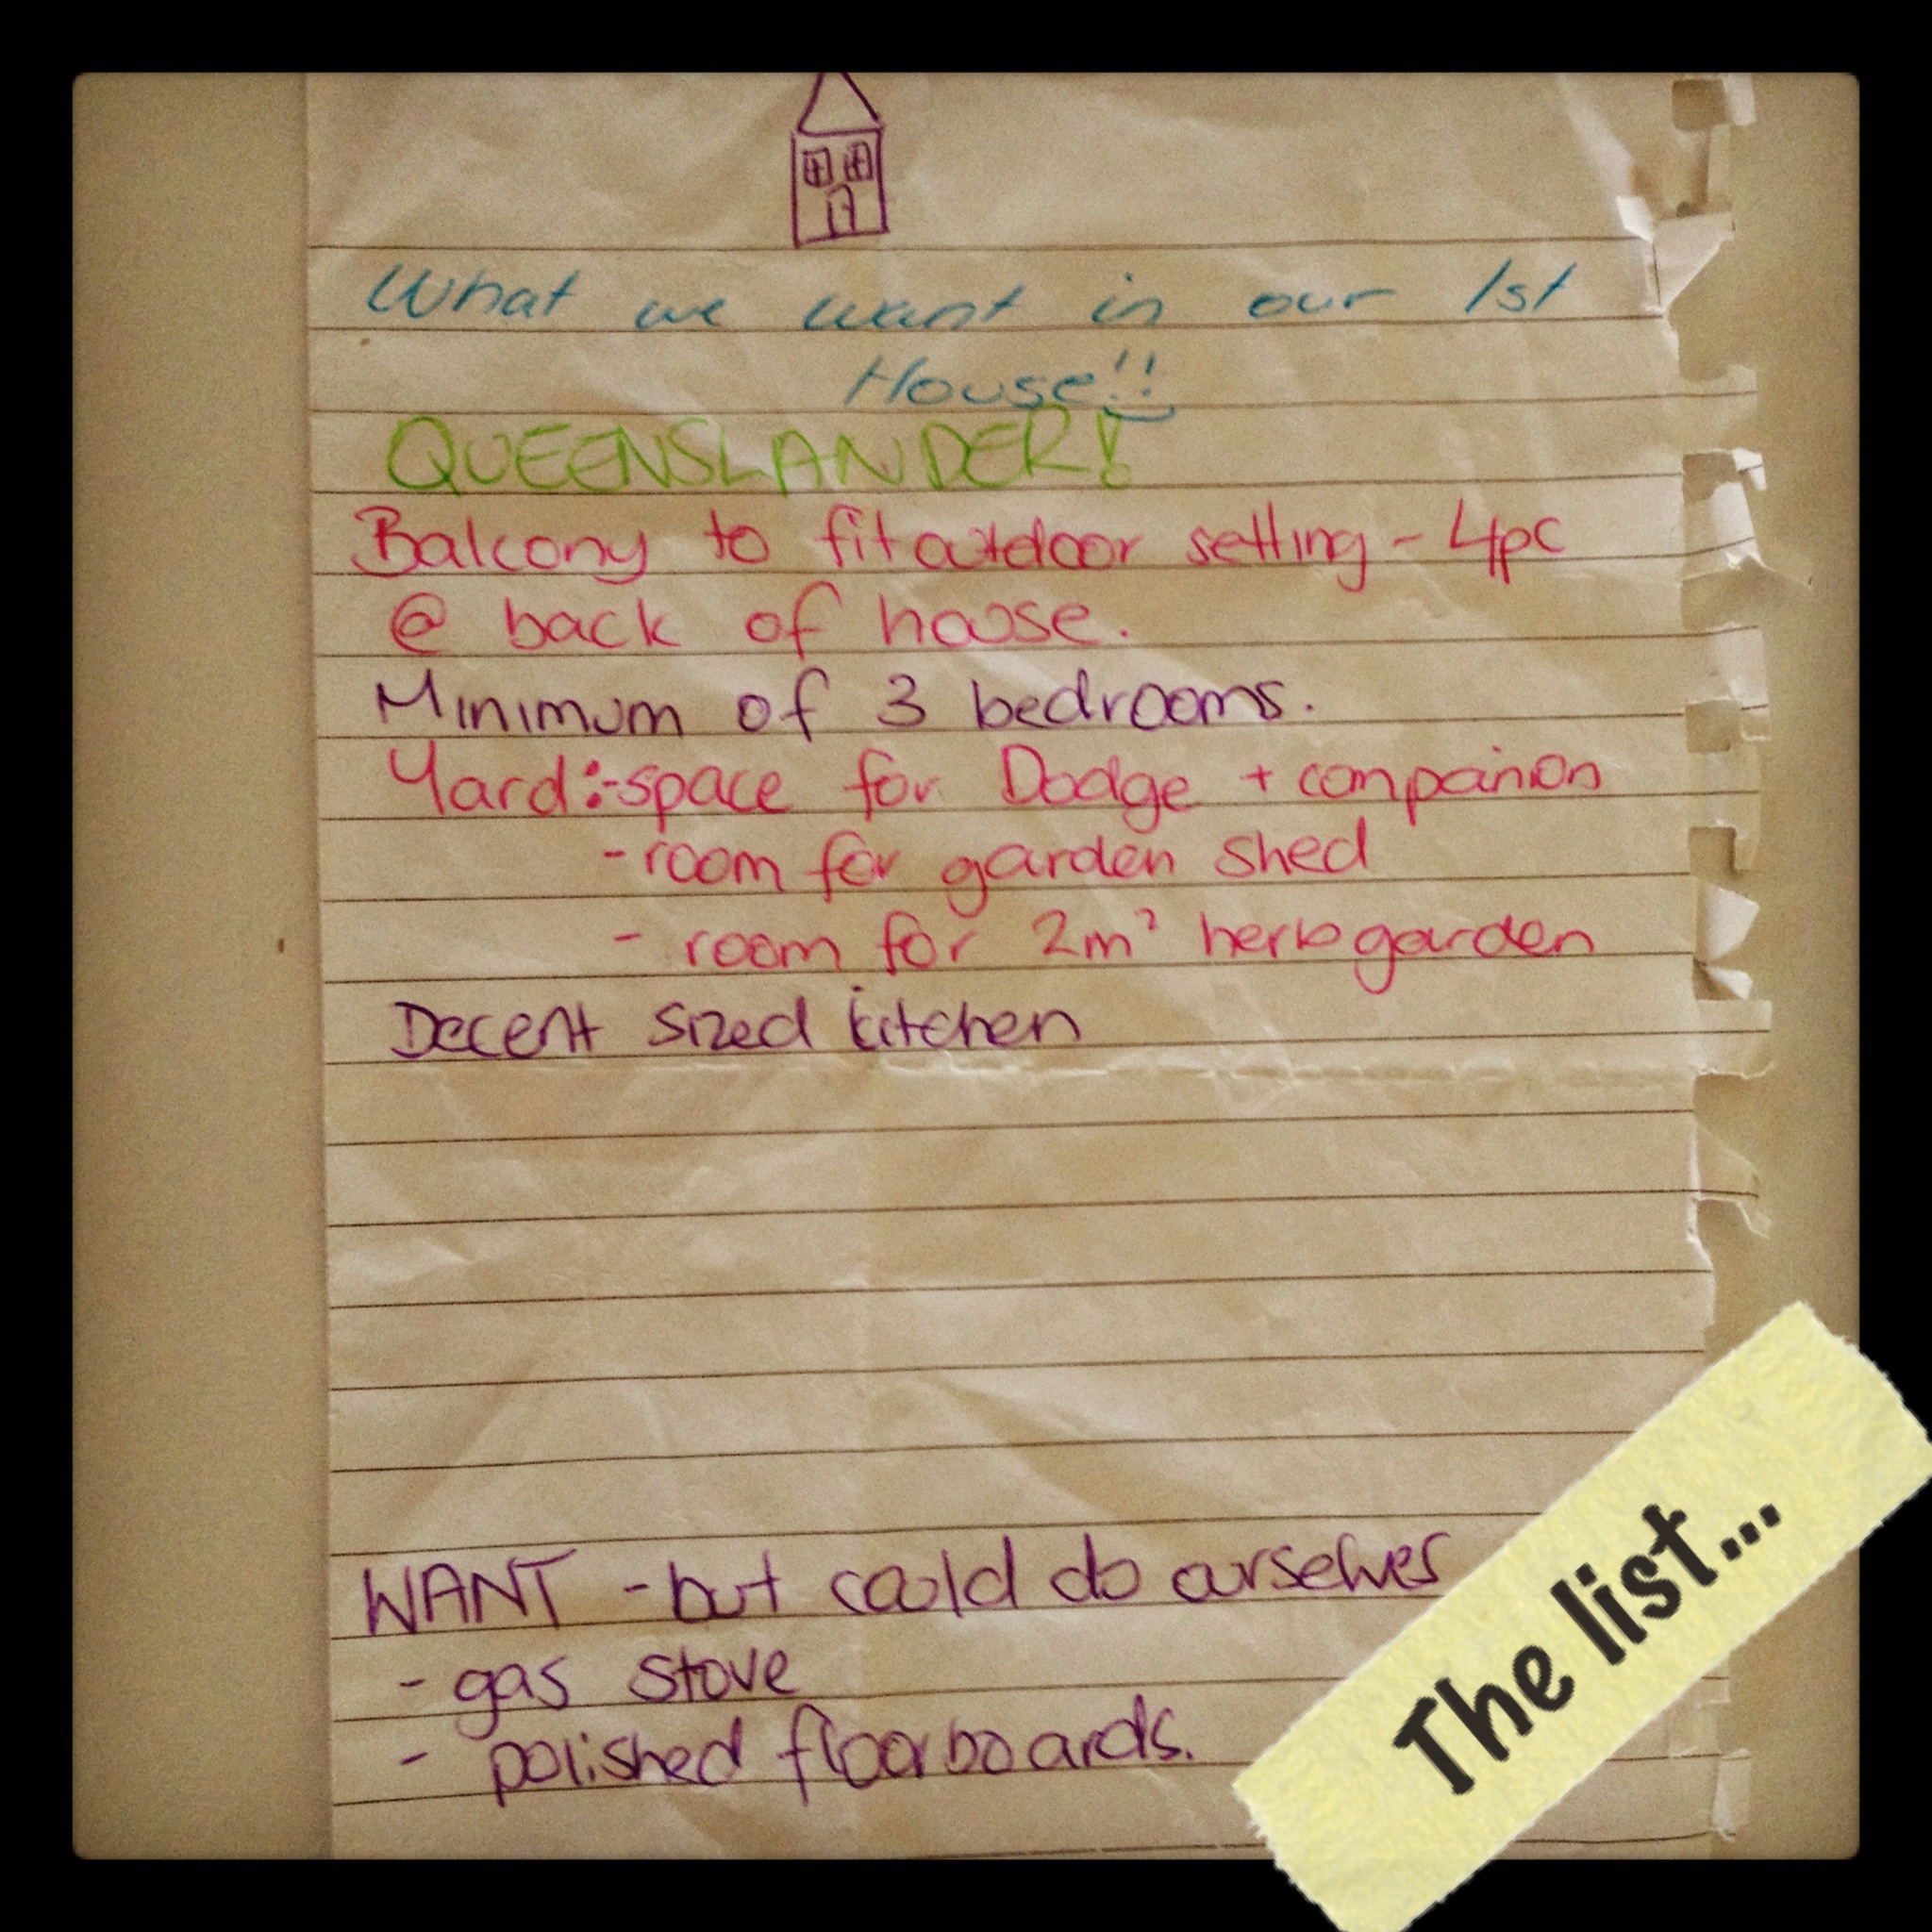 What we want in our 1st
House!!
QUEENSLANDER!
Balcony to fit outdoor setting - 4pc
@ back of house.
Minimum of 3 bedrooms.
Yard:-space for Dodge + companion
- room for garden shed
- room for 2m² herb garden
Decent sized kitchen
WANT - but could do ourselves
- gas stove
- polished floorboards.
The list...